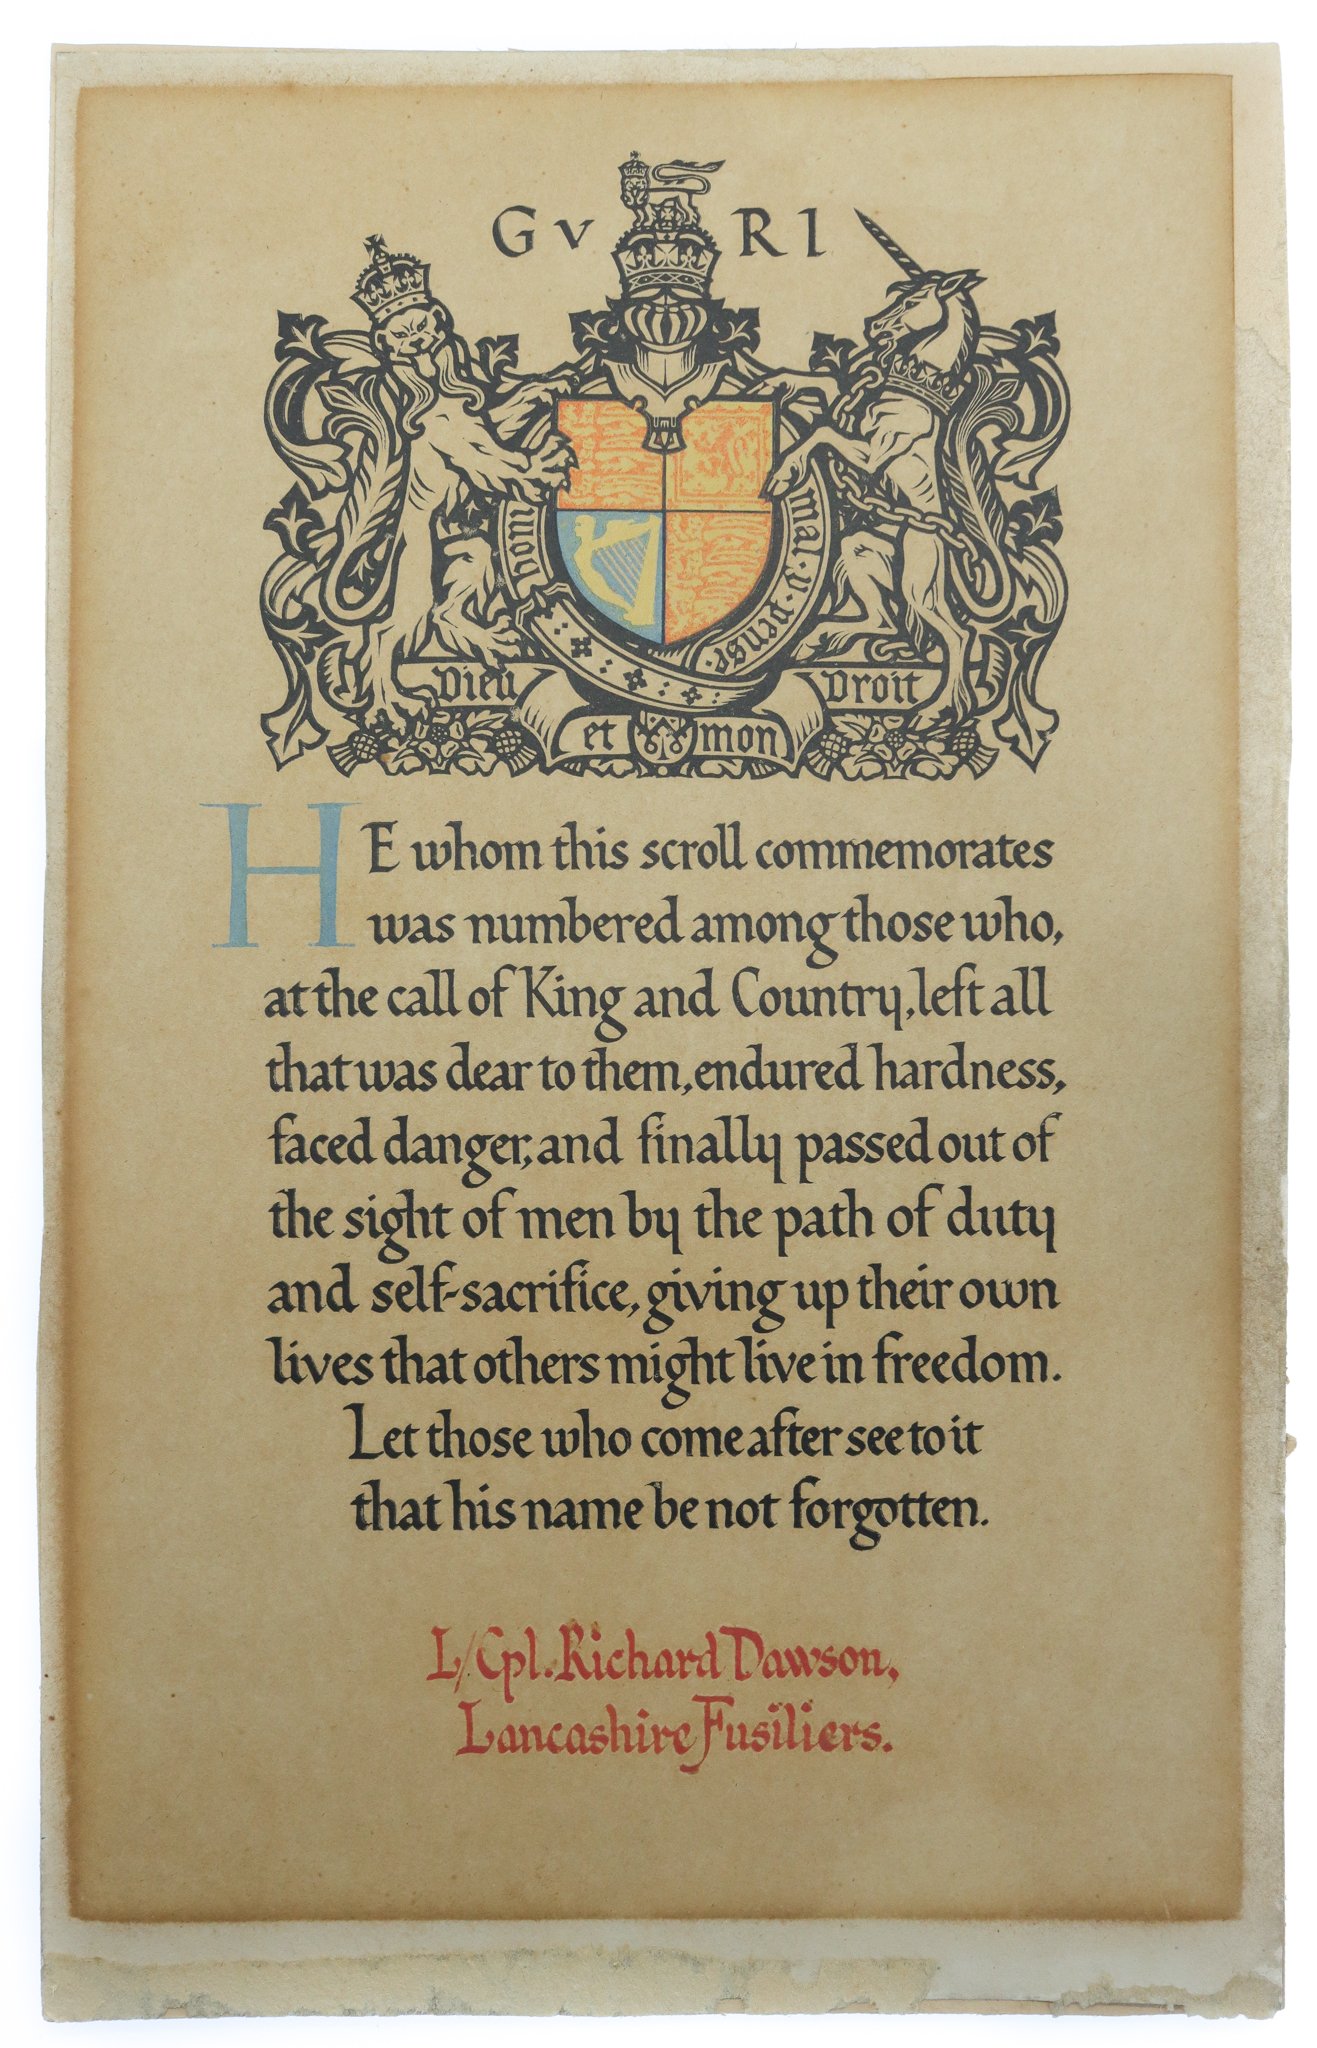 G V R I
honi
mal · y · pense ·
Dieu
et mon
Droit
HE whom this scroll commemorates
was numbered among those who,
at the call of King and Country, left all
that was dear to them, endured hardness,
faced danger, and finally passed out of
the sight of men by the path of duty
and self-sacrifice, giving up their own
lives that others might live in freedom.
Let those who come after see to it
that his name be not forgotten.
L/Cpl. Richard Dawson,
Lancashire Fusiliers.